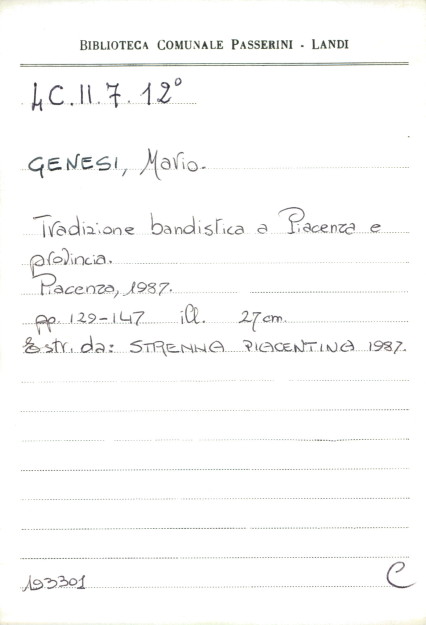 BIBLIOTECA COMUNALE PASSERINI - LANDI
4C.II.7.12°
GENESI, Mario.
Tradizione bandistica a Piacenza e
provincia.
Piacenza, 1987.
pp. 129-147 ill. 27cm.
Estr. da: STRENNA PIACENTINA 1987.
193301 C